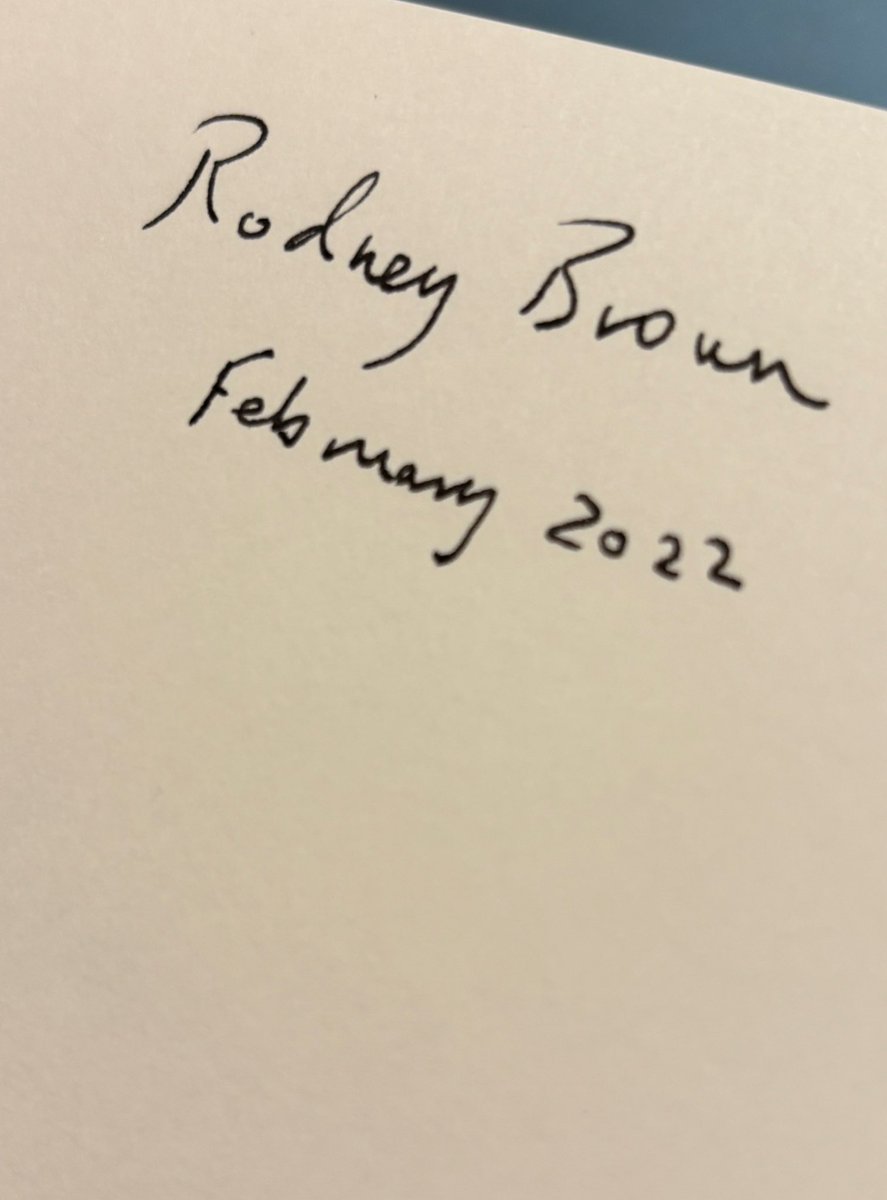 Rodney Brown
February 2022